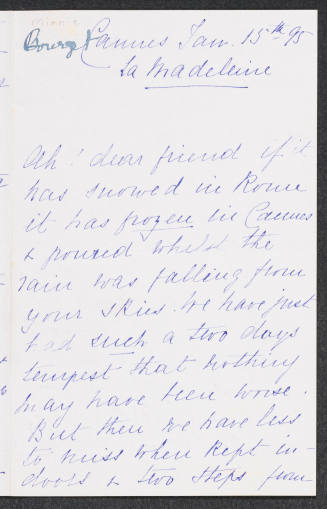 Minnie
Bourget
Cannes Jan. 15th 95
La Madeleine
Ah! dear friend if it
has snowed in Rome
it has frozen in Cannes
& poured whilst the
rain was falling from
your skies. We have just
had such a two days
tempest that nothing
may have been worse.
But then we have less
to miss when kept in-
doors & two steps from